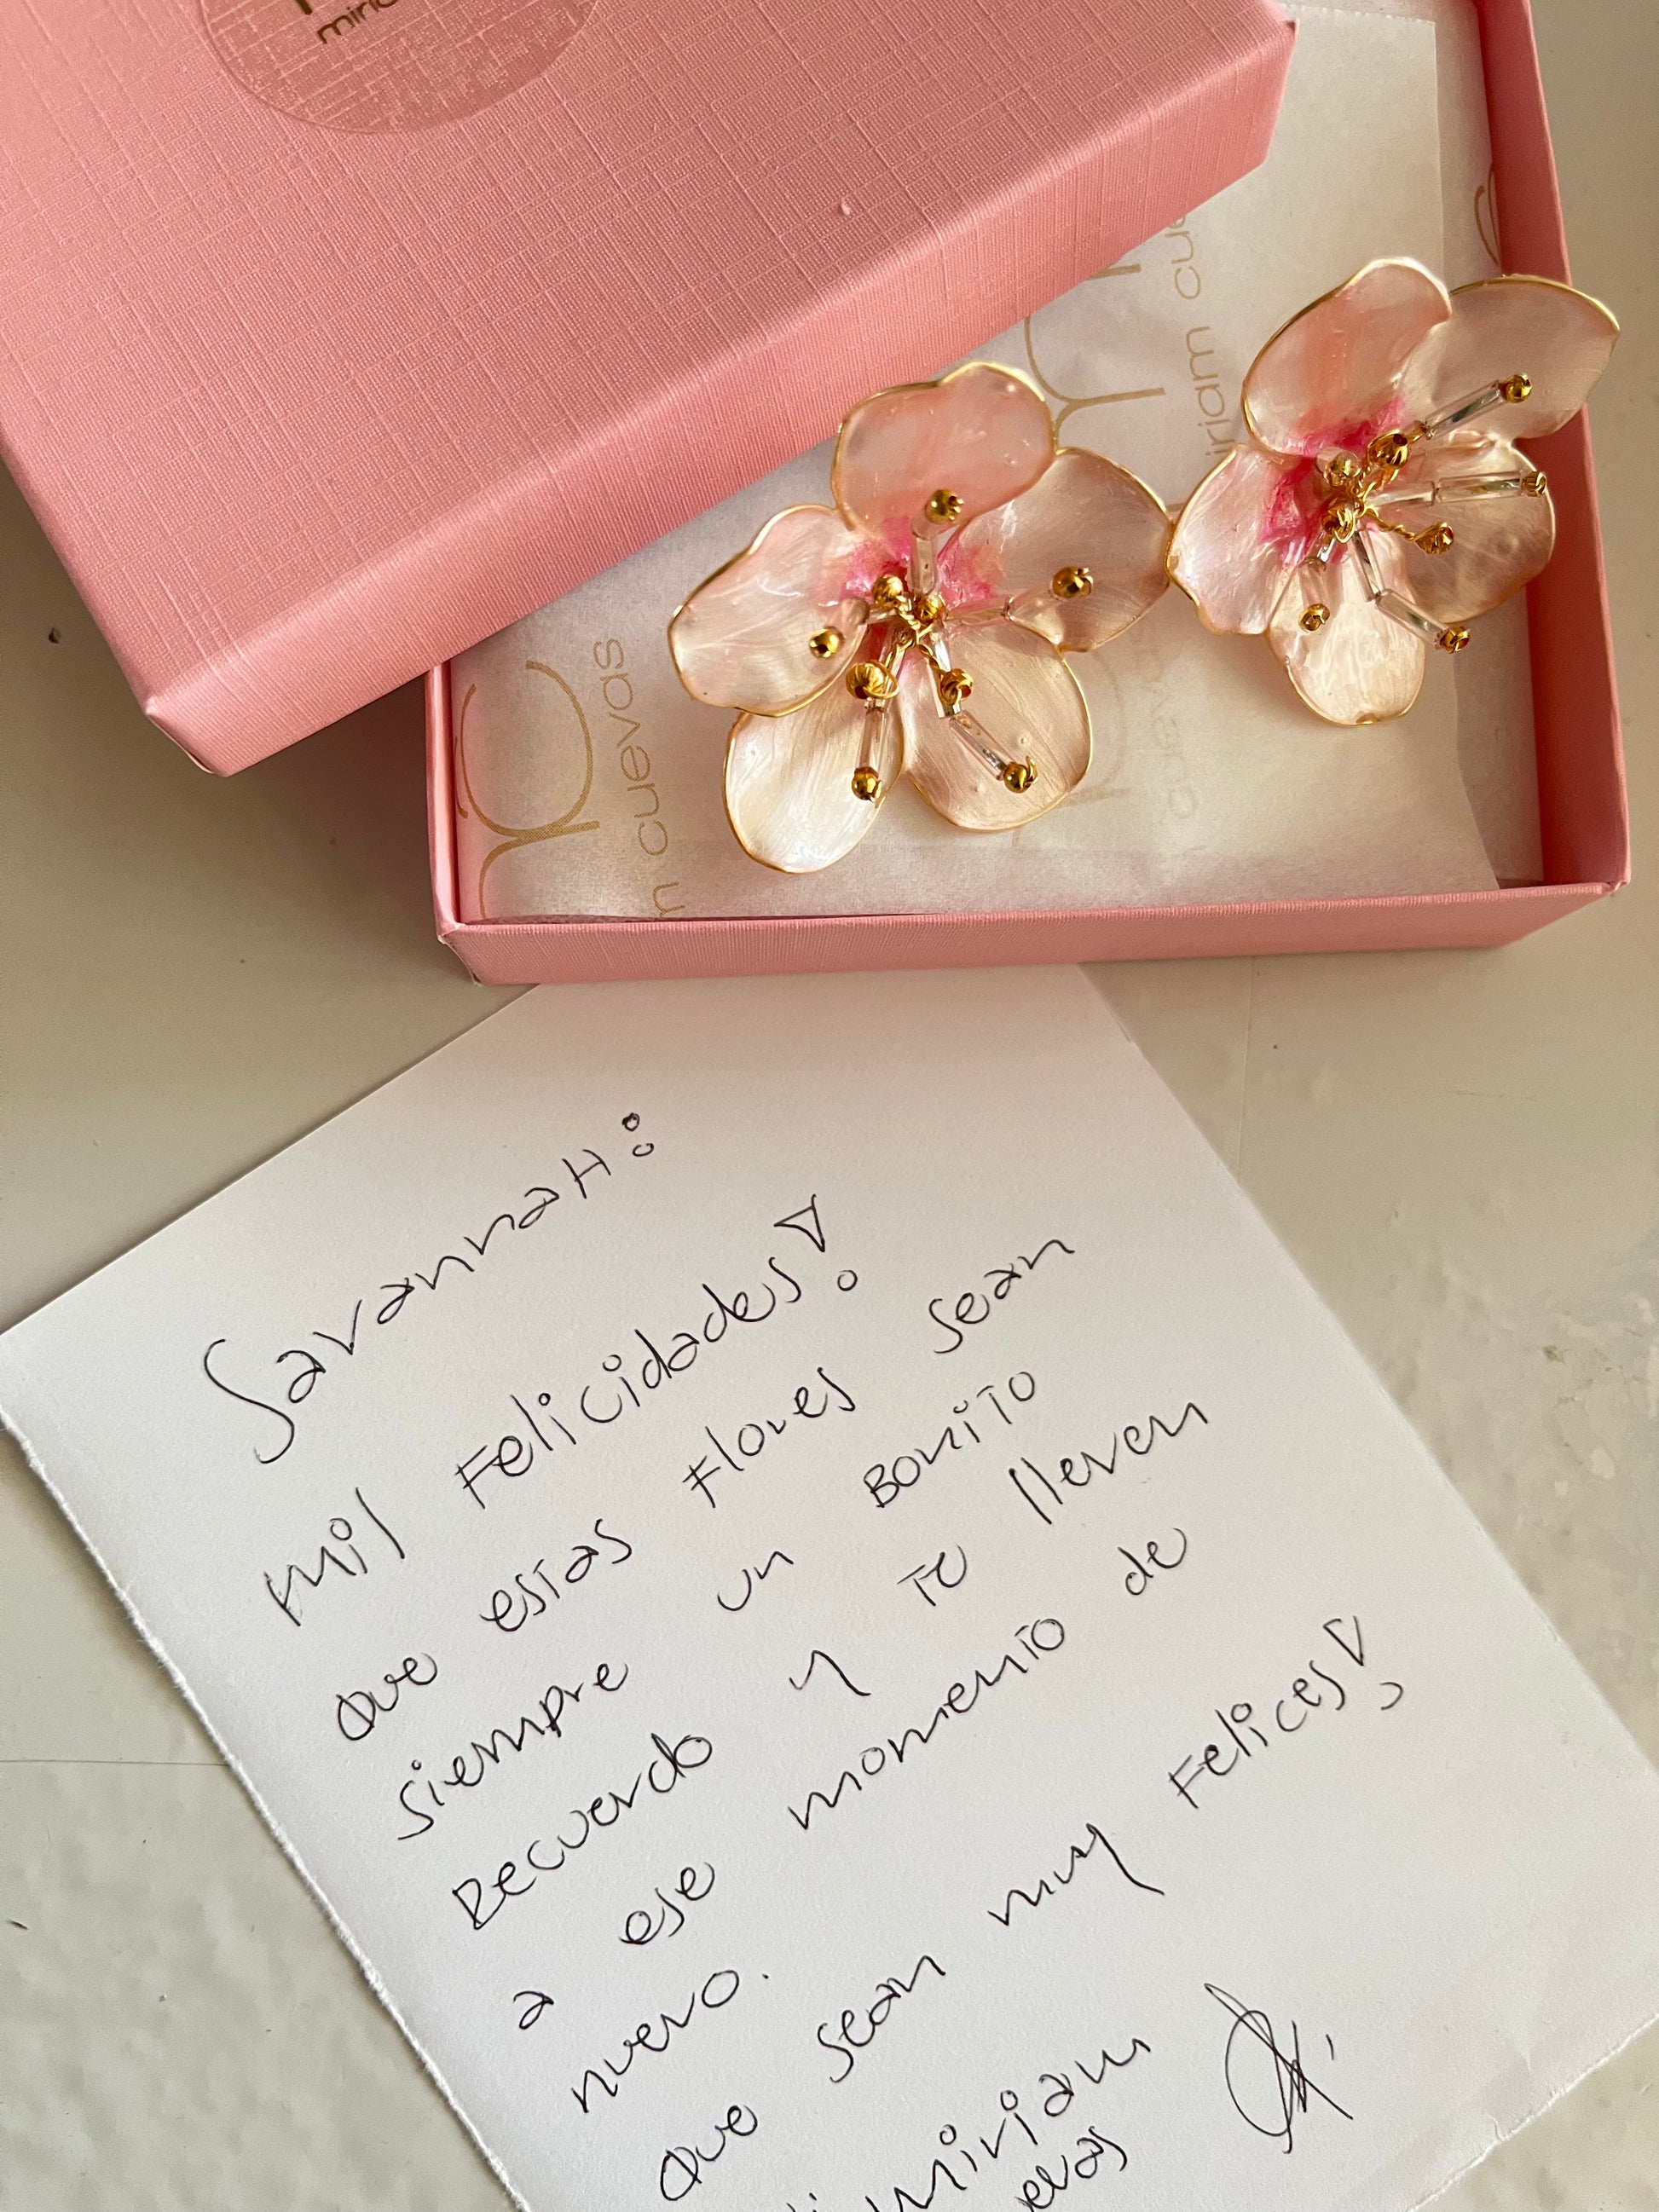 cuevas
riam cue
cuevas
m cuevas
Savannah:
mil Felicidades!
Que estas Flores sean
siempre un Bonito
Recuerdo y te lleven
a ese momento de
nuevo.
Que sean muy Felices!
miriam